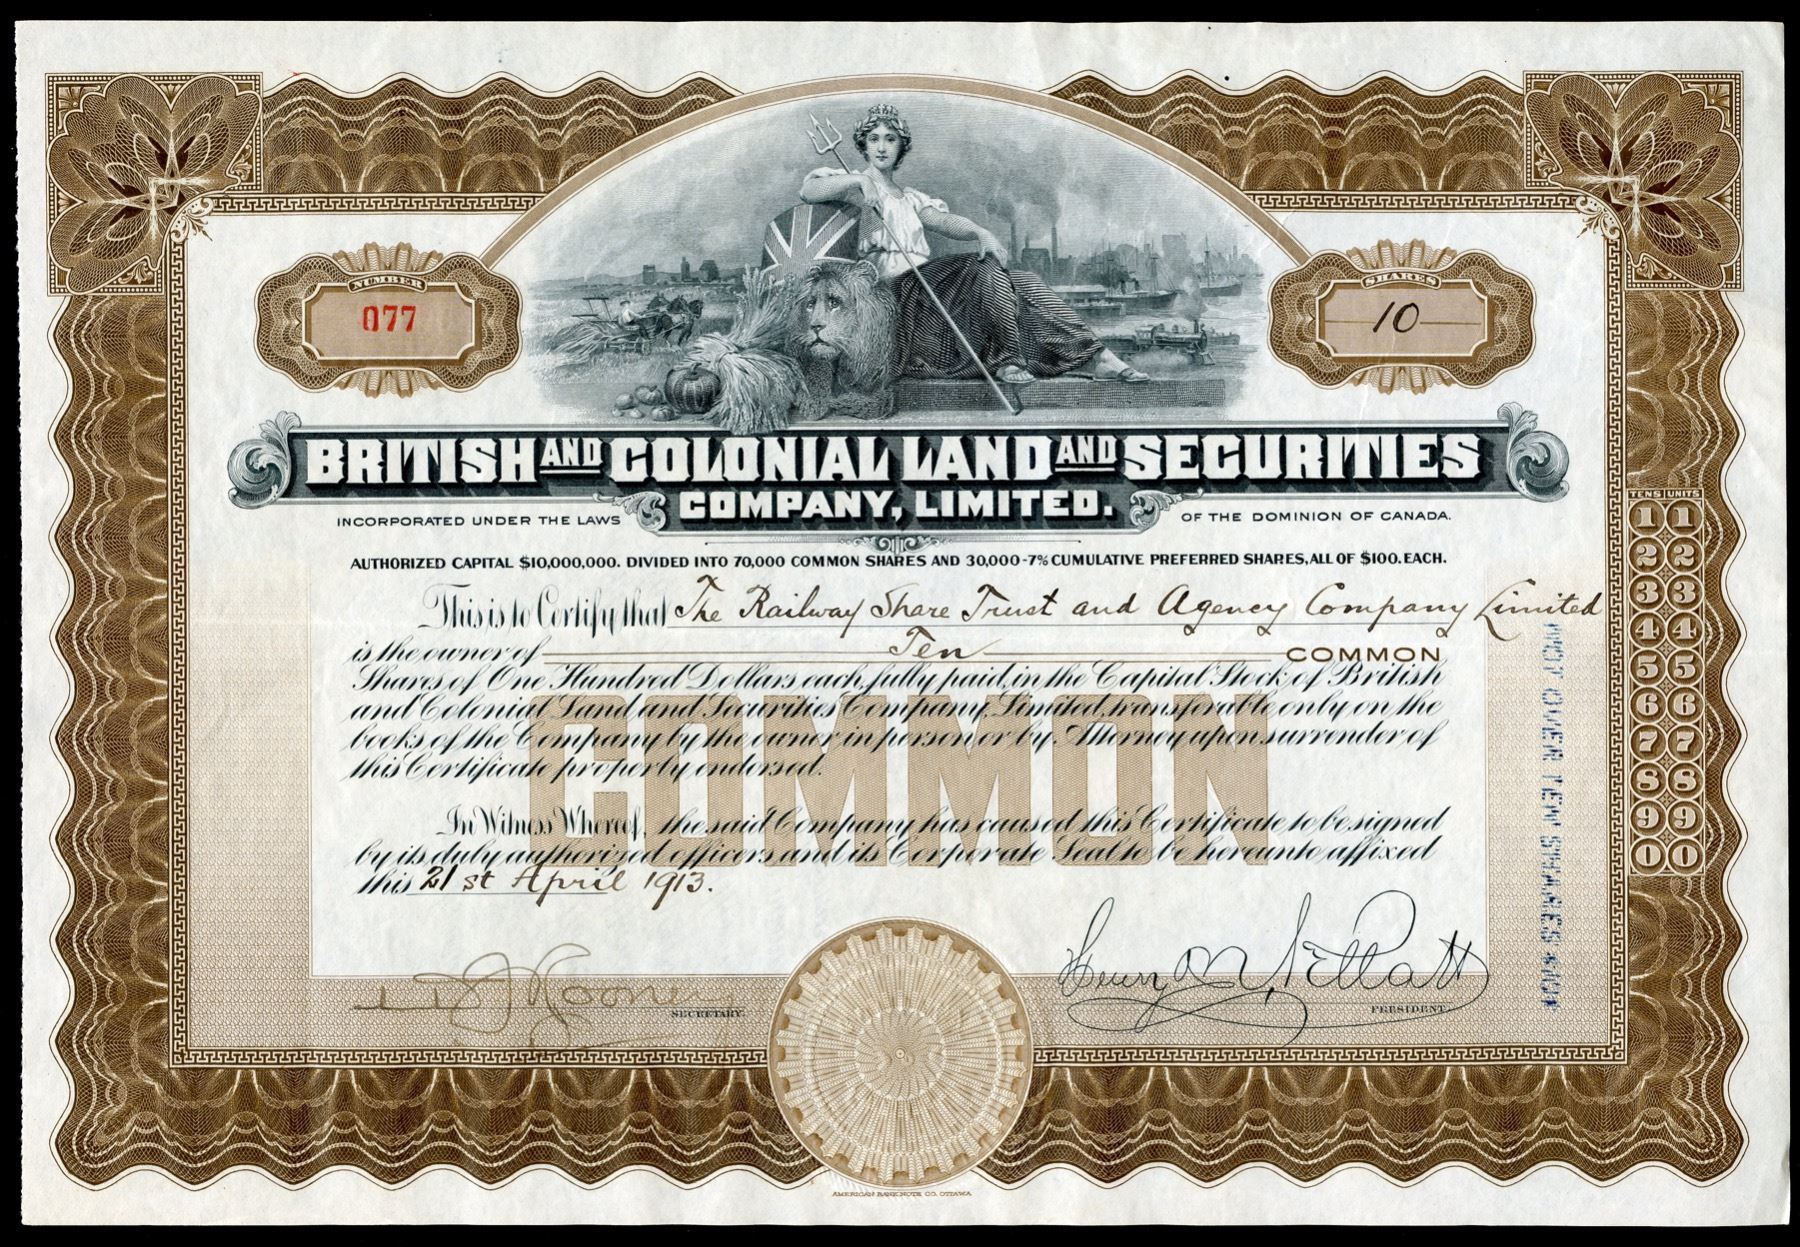 NUMBER
077
SHARES
10
BRITISH AND COLONIAL LAND AND SECURITIES
COMPANY, LIMITED.
INCORPORATED UNDER THE LAWS OF THE DOMINION OF CANADA.
AUTHORIZED CAPITAL $10,000,000. DIVIDED INTO 70,000 COMMON SHARES AND 30,000-7% CUMULATIVE PREFERRED SHARES, ALL OF $100. EACH.
This is to Certify that The Railway Share Trust and Agency Company Limited
is the owner of Ten COMMON
Shares of One Hundred Dollars each, fully paid, in the Capital Stock of British
and Colonial Land and Securities Company, Limited, transferable only on the
books of the Company by the owner in person or by Attorney upon surrender of
this Certificate properly endorsed.
COMMON
In Witness Whereof, the said Company has caused this Certificate to be signed
by its duly authorized officers and its Corporate Seal to be hereunto affixed
this 21st April 1913.
Mooney
SECRETARY.
Henry M Pellatt
PRESIDENT.
TENS UNITS
1 1
2 2
3 3
4 4
5 5
6 6
7 7
8 8
9 9
0 0
NOT OVER TEN SHARES
AMERICAN BANK NOTE CO. OTTAWA